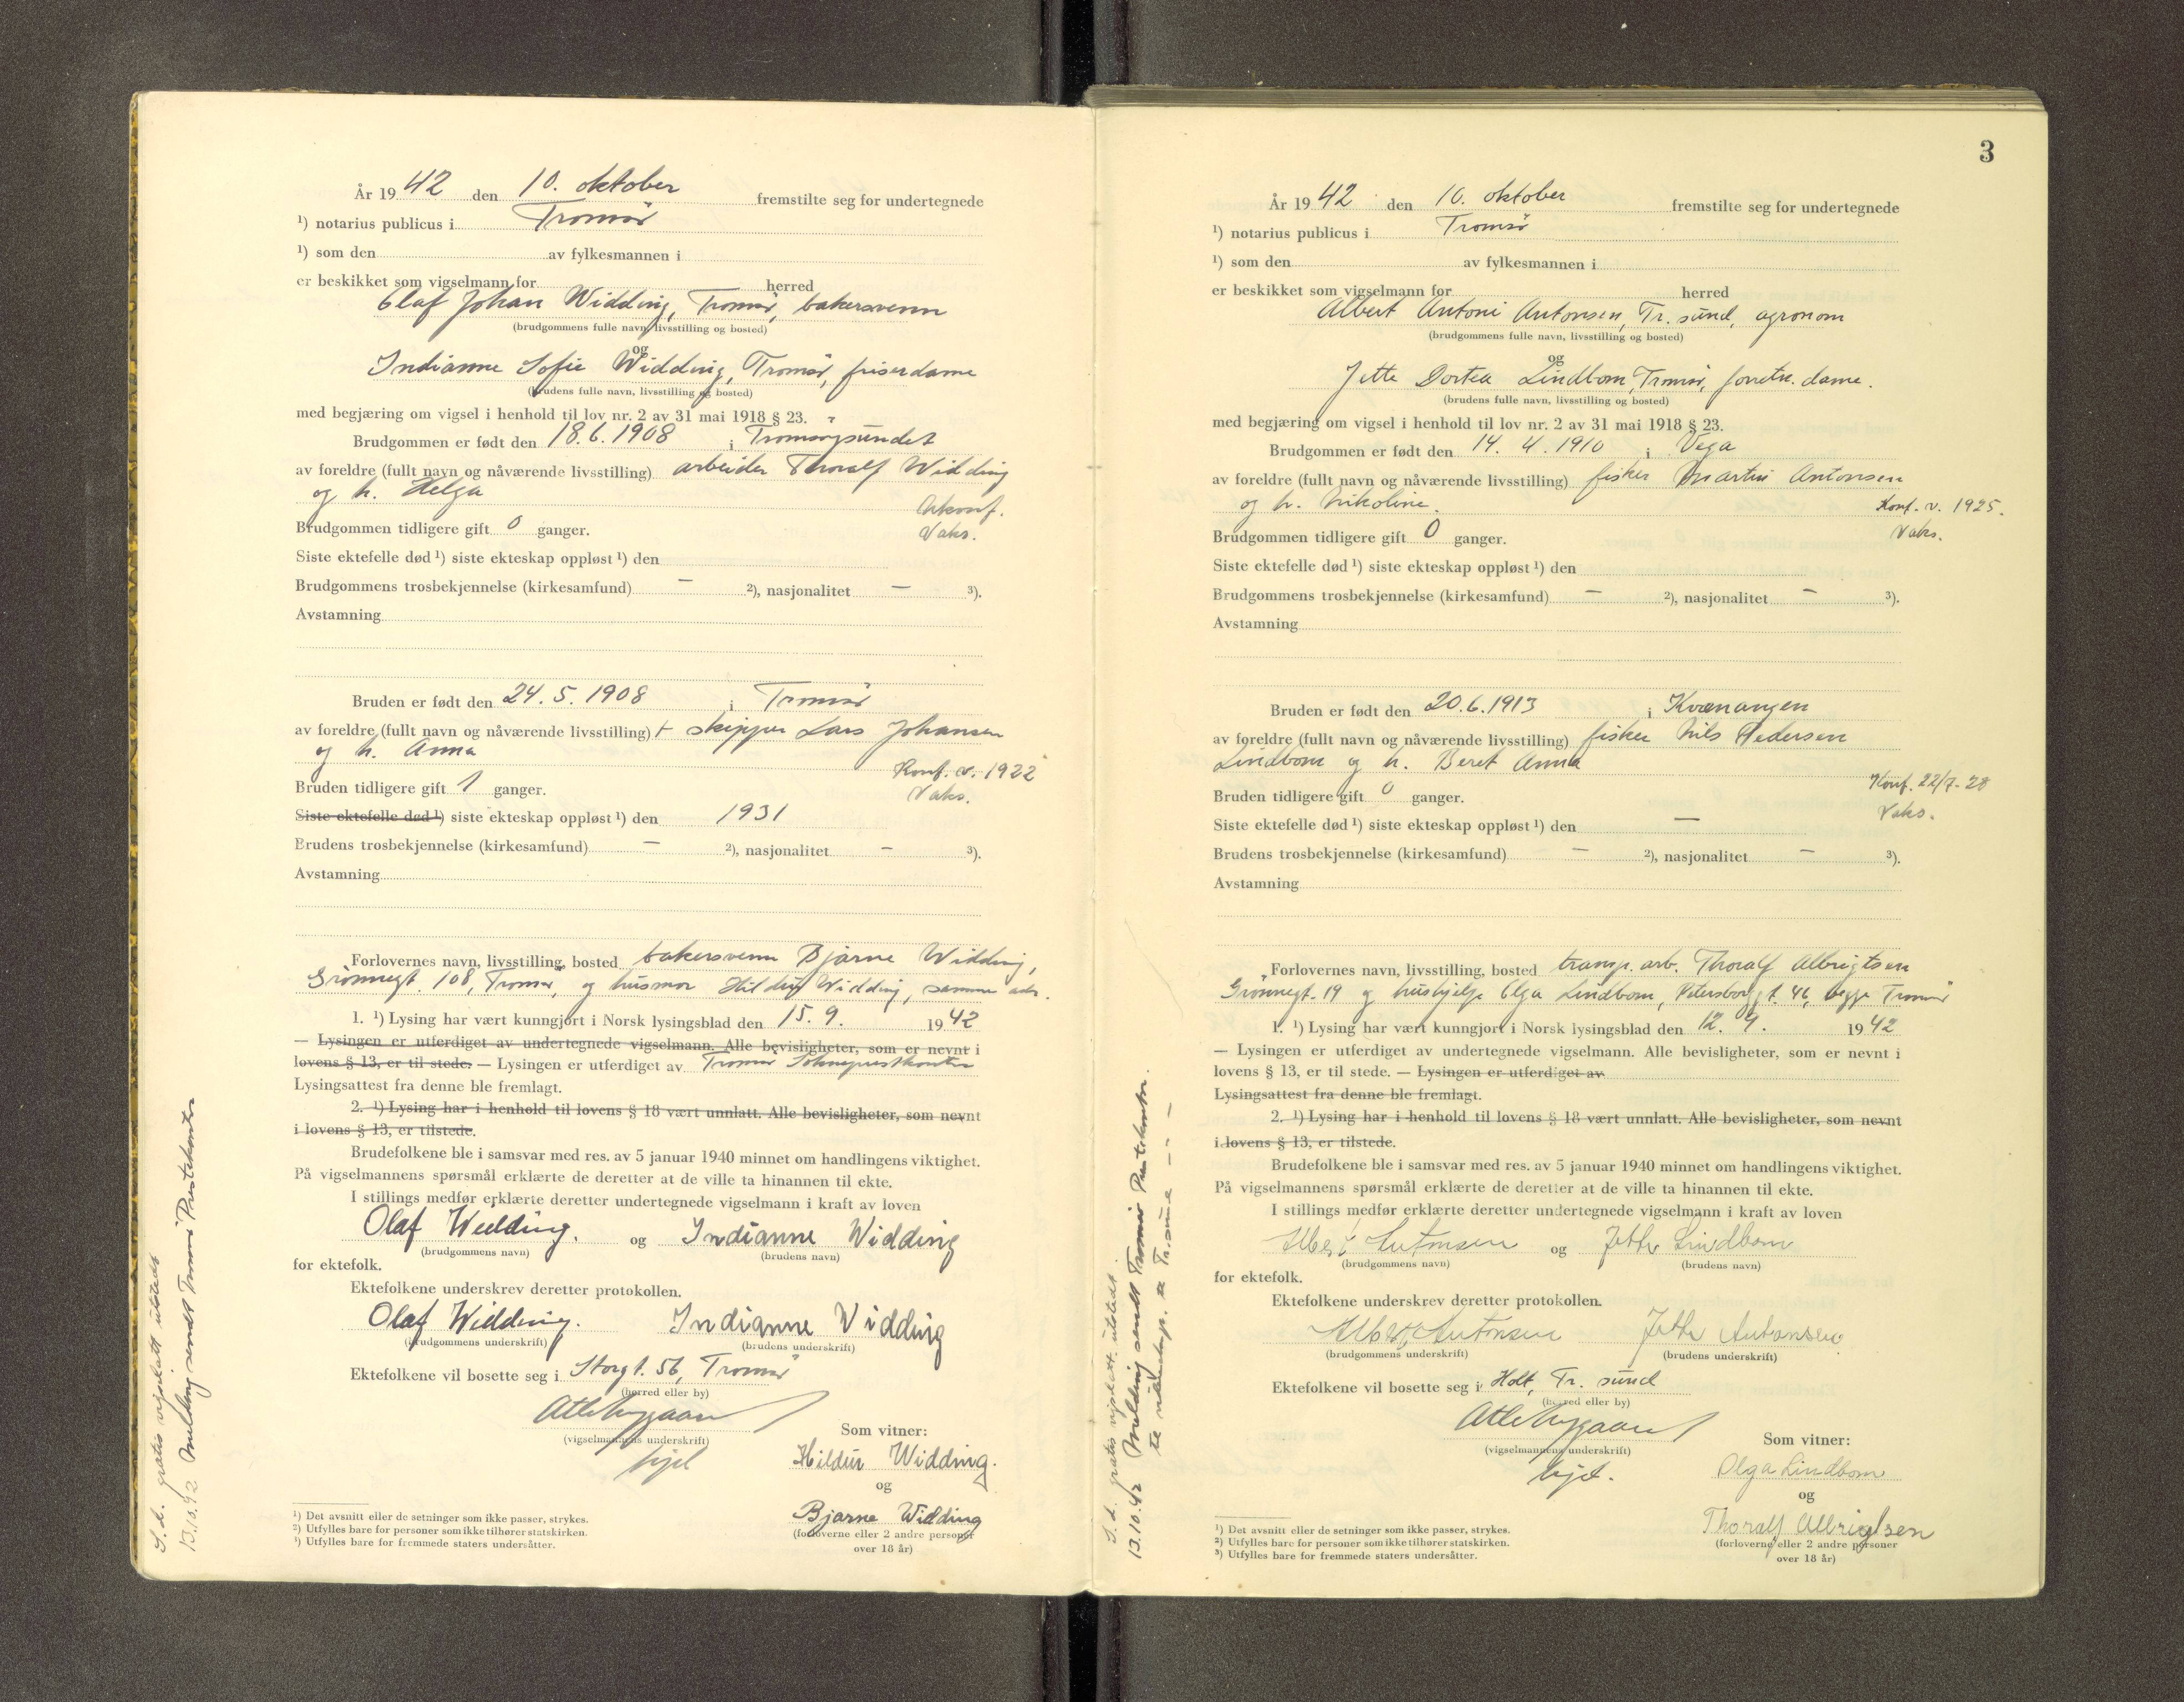 År 19 42 den 10. oktober fremstilte seg for undertegnede
¹) notarius publicus i Tromsö
¹) som den av fylkesmannen i
er beskikket som vigselmann for herred
Olaf Johan Widding, Tromsö, bakersvenn
(brudgommens fulle navn, livsstilling og bosted)
og
Indianne Sofie Widding, Tromsö, friserdame
(brudens fulle navn, livsstilling og bosted)
med begjæring om vigsel i henhold til lov nr. 2 av 31 mai 1918 § 23.
Brudgommen er født den 18.6.1908 i Tromsøysundet
av foreldre (fullt navn og nåværende livsstilling) arbeider Thoralf Widding
og h. Helga
Ukonf.
Brudgommen tidligere gift 0 ganger.
Vaks.
Siste ektefelle død ¹) siste ekteskap oppløst ¹) den
Brudgommens trosbekjennelse (kirkesamfund) — ²), nasjonalitet — ³).
Avstamning
Bruden er født den 24.5.1908 i Tromsö
av foreldre (fullt navn og nåværende livsstilling) + skipper Lars Johansen
og h. Anna
Konf. v. 1922
Bruden tidligere gift 1 ganger.
Vaks.
Siste ektefelle død ¹) siste ekteskap oppløst ¹) den 1931
Brudens trosbekjennelse (kirkesamfund) — ²), nasjonalitet — ³).
Avstamning
Forlovernes navn, livsstilling, bosted bakersvenn Bjarne Widding,
Grönnegt. 108, Tromsö, og husmor Hildur Widding, samme adr.
1. ¹) Lysing har vært kunngjort i Norsk lysingsblad den 15.9. 1942
— Lysingen er utferdiget av undertegnede vigselmann. Alle bevisligheter, som er nevnt i
lovens § 13, er til stede. — Lysingen er utferdiget av Tromsö Sokneprestkontor
Lysingsattest fra denne ble fremlagt.
2. ¹) Lysing har i henhold til lovens § 18 vært unnlatt. Alle bevisligheter, som nevnt
i lovens § 13, er tilstede.
Brudefolkene ble i samsvar med res. av 5 januar 1940 minnet om handlingens viktighet.
På vigselmannens spørsmål erklærte de deretter at de ville ta hinannen til ekte.
I stillings medfør erklærte deretter undertegnede vigselmann i kraft av loven
Olaf Widding. og Indianne Widding
(brudgommens navn) (brudens navn)
for ektefolk.
Ektefolkene underskrev deretter protokollen.
Olaf Widding. Indianne Widding
(brudgommens underskrift) (brudens underskrift)
Ektefolkene vil bosette seg i Storgt. 56, Tromsö
(herred eller by)
(vigselmannens underskrift)
Som vitner:
Hildur Widding.
og
Bjarne Widding
(forloverne eller 2 andre personer
over 18 år)
¹) Det avsnitt eller de setninger som ikke passer, strykes.
²) Utfylles bare for personer som ikke tilhører statskirken.
³) Utfylles bare for fremmede staters undersåtter.
S.d. gratis vigselatt. utstedt
13.10.42 Melding sendt Tromsö Prestekontor
3
År 19 42 den 10. oktober fremstilte seg for undertegnede
¹) notarius publicus i Tromsö
¹) som den av fylkesmannen i
er beskikket som vigselmann for herred
Albert Antoni Antonsen, Tr. sund, agronom
(brudgommens fulle navn, livsstilling og bosted)
og
Jette Dortea Lindbom, Tromsö, forretn. dame.
(brudens fulle navn, livsstilling og bosted)
med begjæring om vigsel i henhold til lov nr. 2 av 31 mai 1918 § 23.
Brudgommen er født den 14. 4. 1910 i Vega
av foreldre (fullt navn og nåværende livsstilling) fisker Martin Antonsen
og h. Nikoline.
Konf. v. 1925.
Brudgommen tidligere gift 0 ganger.
Vaks.
Siste ektefelle død ¹) siste ekteskap oppløst ¹) den
Brudgommens trosbekjennelse (kirkesamfund) — ²), nasjonalitet — ³).
Avstamning
Bruden er født den 20.6.1913 i Kvænangen
av foreldre (fullt navn og nåværende livsstilling) fisker Nils Pedersen
Lindbom og h. Beret Anna
Konf. 22/7-28
Bruden tidligere gift 0 ganger.
Vaks.
Siste ektefelle død ¹) siste ekteskap oppløst ¹) den —
Brudens trosbekjennelse (kirkesamfund) — ²), nasjonalitet — ³).
Avstamning
Forlovernes navn, livsstilling, bosted transp. arb. Thoralf Albrigtsen
Grönnegt. 19 og hushjelp Olga Lindbom, Petersborggt. 46, begge Tromsö
1. ¹) Lysing har vært kunngjort i Norsk lysingsblad den 12. 9. 1942
— Lysingen er utferdiget av undertegnede vigselmann. Alle bevisligheter, som er nevnt i
lovens § 13, er til stede. — Lysingen er utferdiget av
Lysingsattest fra denne ble fremlagt.
2. ¹) Lysing har i henhold til lovens § 18 vært unnlatt. Alle bevisligheter, som nevnt
i lovens § 13, er tilstede.
Brudefolkene ble i samsvar med res. av 5 januar 1940 minnet om handlingens viktighet.
På vigselmannens spørsmål erklærte de deretter at de ville ta hinannen til ekte.
I stillings medfør erklærte deretter undertegnede vigselmann i kraft av loven
Albert Antonsen og Jette Lindbom
(brudgommens navn) (brudens navn)
for ektefolk.
Ektefolkene underskrev deretter protokollen.
Albert Antonsen Jette Antonsen
(brudgommens underskrift) (brudens underskrift)
Ektefolkene vil bosette seg i Holt, Tr. sund
(herred eller by)
(vigselmannens underskrift)
Som vitner:
Olga Lindbom
og
Thoralf Albrigtsen
(forloverne eller 2 andre personer
over 18 år)
¹) Det avsnitt eller de setninger som ikke passer, strykes.
²) Utfylles bare for personer som ikke tilhører statskirken.
³) Utfylles bare for fremmede staters undersåtter.
S.d. gratis vigselatt. utstedt.
13.10.42 Melding sendt Tromsö Prestekontor.
Tr. sund — — —